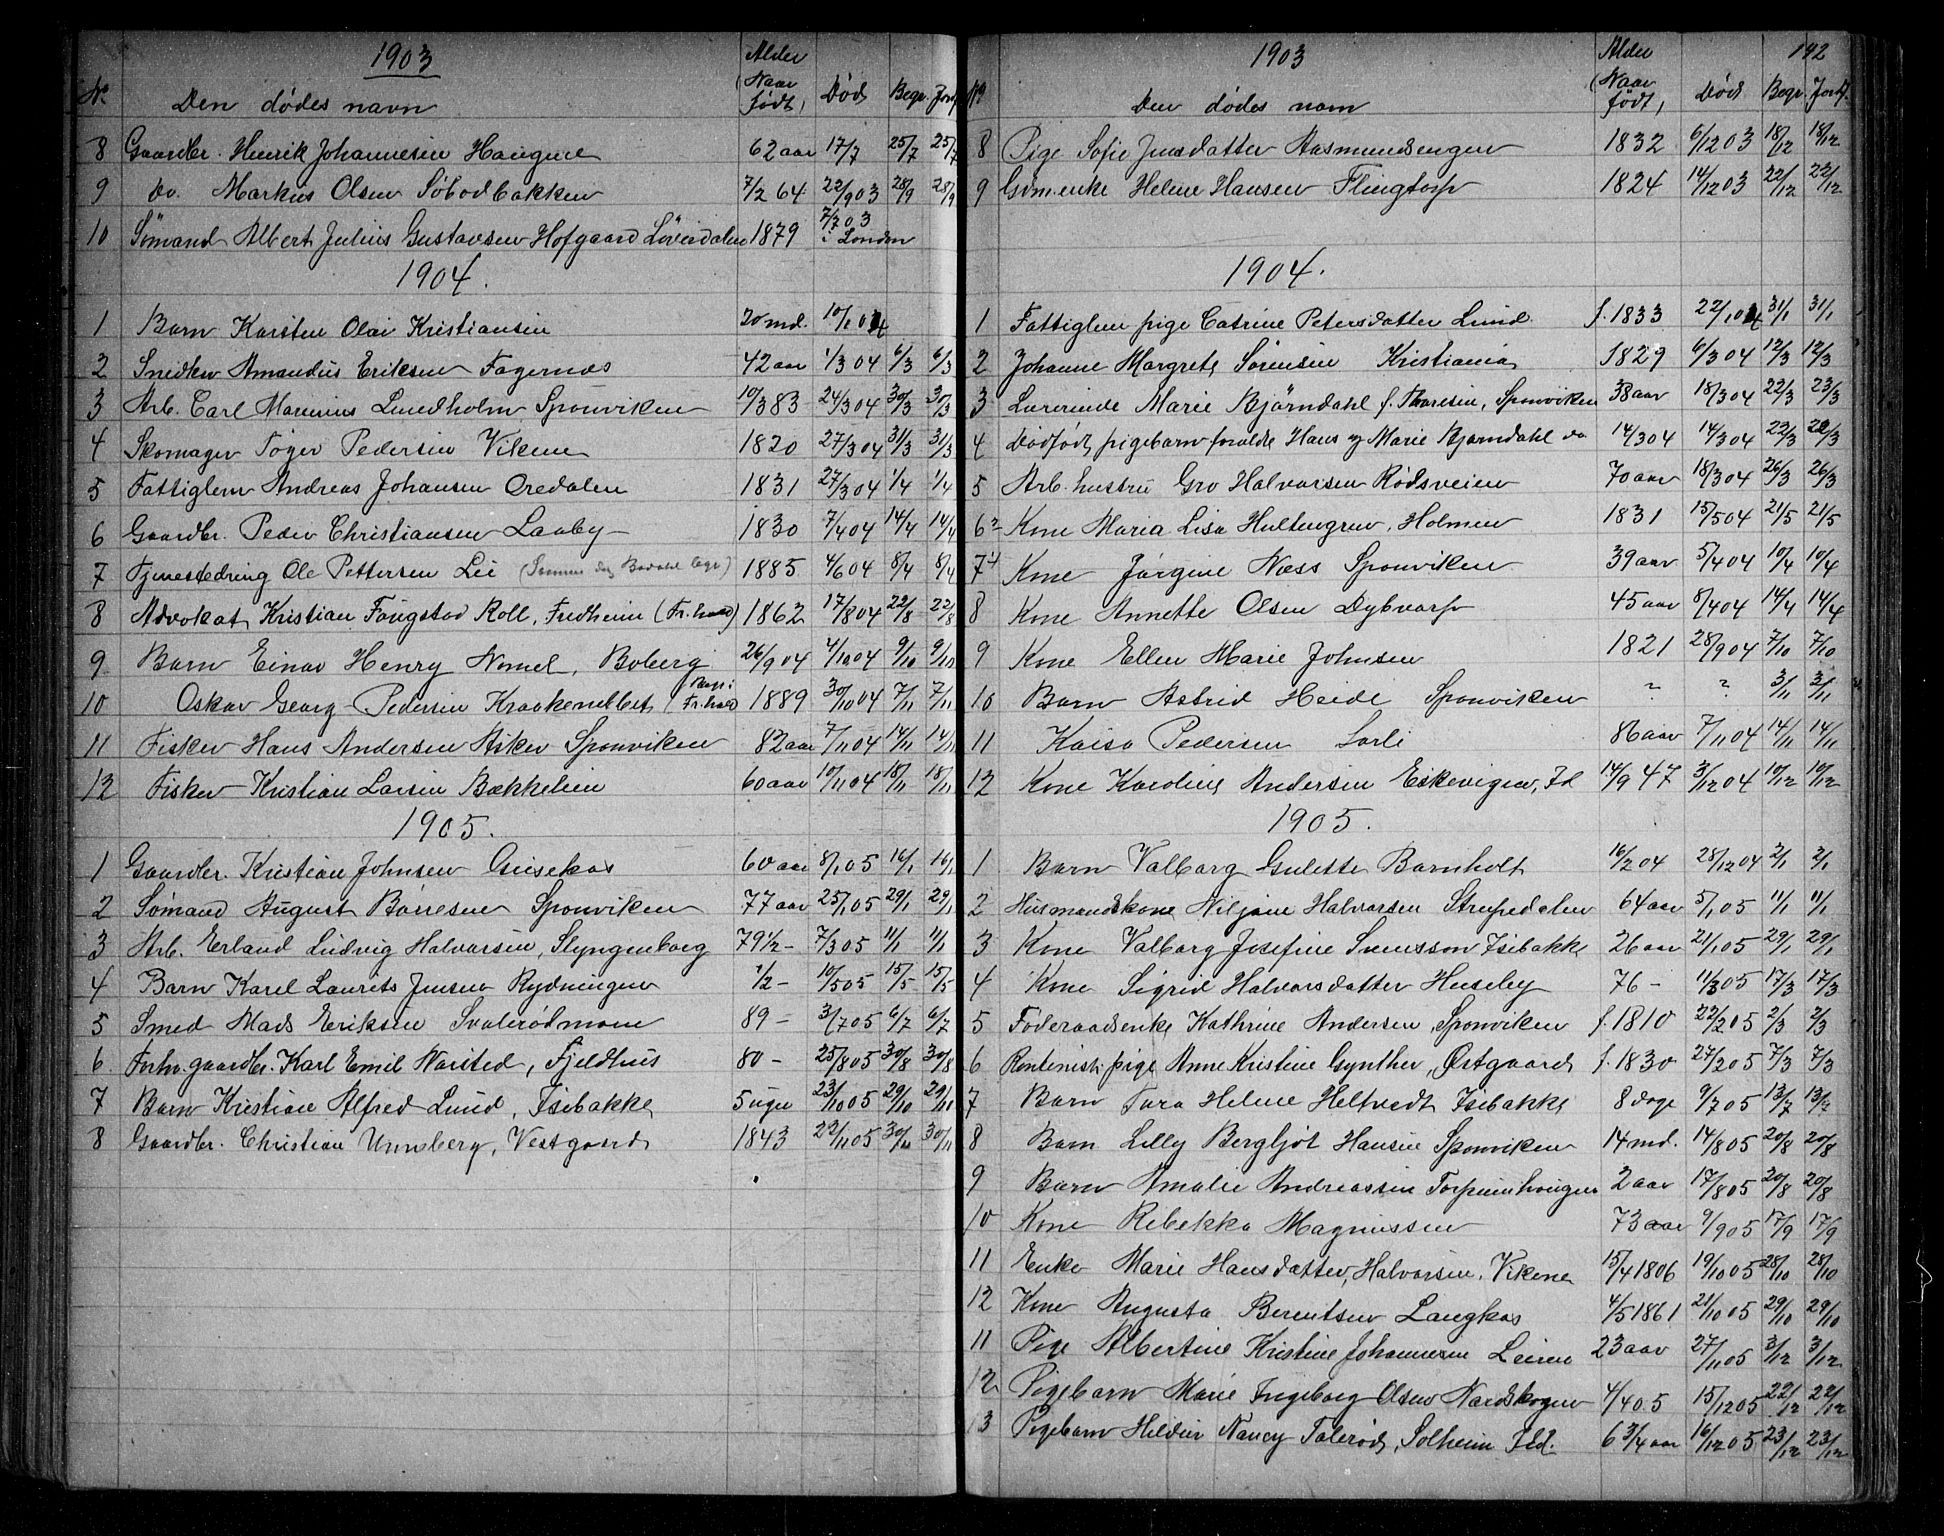 1903
Nº Den dødes navn Alder (Naar født) Død Begr. Jordf.
8 Gaardbr. Henrik Johannesen Haugene 62 aar 17/7 25/7 25/7
9 do. Markus Olsen Söbodbakken 7/2 64 22/9 03 28/9 28/9
10 Sömand Albert Julius Gustavsen Hofgaard Løverdalen 1879 7/7 03 i London
1904.
1 Barn Karsten Olai Kristiansen 20 md. 10/1 04
2 Snedker Amandus Eriksen Fagernæs 42 aar 1/3 04 6/3 6/3
3 Arb. Carl Maurius Lundholm Sponviken 10/3 83 24/3 04 30/3 30/3
4 Skomager Töger Pedersen Vikene 1820 27/3 04 31/3 31/3
5 Fattiglem Andreas Johansen Oredalen 1831 27/3 04 1/4 1/4
6 Gaardbr. Peder Christiansen Laaby 1830 7/4 04 14/4 14/4
7 Tjenestedreng Ole Pettersen Lie 1885 4/6 04 8/4 8/4
8 Advokat Kristian Fougstad Roll, Fredheim (Fr.hald) 1862 17/8 04 22/8 22/8
9 Barn Einar Henry Nomel, Boberg 26/9 04 4/10 04 9/10 9/10
10 Oskar Georg Pedersen Kraakenebbet (Begr. i Fr.hald) 1889 30/10 04 7/11 7/11
11 Fisker Hans Andersen Asker Sponviken 82 aar 7/11 04 14/11 14/11
12 Fisker Kristian Larsen Bækkelien 60 aar 10/11 04 18/11 18/11
1905.
1 Gaardbr. Kristian Johnsen Grisekas 60 aar 8/1 05 16/1 16/1
2 Sømand August Børresen Sponviken 77 aar 25/1 05 29/1 29/1
3 Arb. Erland Ludvig Halvorsen, Slyngenborg 79 1/2 - 7/3 05 11/1 11/1
4 Barn Karel Laurets Jensen Rydningen 1/2 - 10/5 05 15/5 15/5
5 Smed Mads Eriksen Svalerødmoen 89 - 3/7 05 6/7 6/7
6 Forhv. gaardbr. Karl Emil Norsted, Fjeldhus 80 - 25/8 05 30/8 30/8
7 Barn Kristian Alfred Lund, Isebakke 5 uger 23/10 05 29/10 29/10
8 Gaardbr. Christian Unneberg, Vestgaard 1843 22/11 05 30/11 30/11
1903 142
Nº Den dødes navn Alder (Naar født) Død Begr. Jordf.
8 Pige Sofie Jensdatter Aasmundsengen 1832 6/12 03 18/12 18/12
9 Gdm.enke Helene Hansen Flingtorp 1824 14/12 03 22/12 22/12
1904.
1 Fattiglem pige Catrine Petersdatter Lund f. 1833 22/1 04 31/1 31/1
2 Johanne Margrete Sørensen Kristiania 1829 6/3 04 12/3 12/3
3 Lærerinde Marie Bjørndahl f. Thoresen, Sponviken 38 aar 18/3 04 22/3 23/3
4 Dødfødt pigebarn foræld. Hans og Marie Bjørndahl do 14/3 04 14/3 04 23/3 23/3
5 Arb. hustru Gro Halvorsen Rødsveien 70 aar 18/3 04 26/3 26/3
6 Kone Maria Lisa Hultengren, Holmen 1831 15/5 04 21/5 21/5
7 Kone Jørgine Næss Sponviken 39 aar 5/4 04 10/4 10/4
8 Kone Annette Olsen Dybvarp 45 aar 8/4 04 14/4 14/4
9 Kone Ellen Marie Johnsen 1821 28/9 04 7/10 7/10
10 Barn Astrid Heide Sponviken ? ? 3/11 3/11
11 Kaisa Pedersen Sorli 86 aar 7/11 04 14/11 14/11
12 Kone Karoline Andersen Eskevigen, Id 14/9 47 3/12 04 10/12 10/12
1905.
1 Barn Valborg Gulette Barnholt 16/2 04 28/12 04 2/1 2/1
2 Husmandskone Niljane Halvorsen Strupedalen 64 aar 5/1 05 11/1 11/1
3 Kone Valborg Josefine Svensson Isebakke 26 aar 21/1 05 29/1 29/1
4 Kone Sigrid Halvorsdatter Huseby 76 - 11/3 05 17/3 17/3
5 Føderaadsenke Kathrine Andersen, Sponviken f. 1810 22/2 05 2/3 2/3
6 Rentenist. pige Anne Kristine Gynther, Østgaard f. 1830 27/2 05 7/3 7/3
7 Barn Tora Helene Heltvedt Isebakke 8 dage 9/7 05 13/7 13/7
8 Barn Lilly Bergljot Hansen Sponviken 14 md. 14/8 05 20/8 20/8
9 Barn Amalie Andreassen Torpumhougen 2 aar 17/8 05 20/8 20/8
10 Kone Rebekka Magnussen 73 aar 9/9 05 17/9 17/9
11 Enke Marie Hansdatter, Halvorsen, Vikene 15/4 1806 19/10 05 28/10 28/10
12 Kone Augusta Berentsen Langkas 4/5 1861 21/10 05 29/10 29/10
11 Pige Albertine Kristine Johannesen Leiren 23 aar 27/11 05 3/12 3/12
12 Pigebarn Marie Ingeborg Olsen Nordskogen 4/4 05 15/12 05 22/12 22/12
13 Pigebarn Heldur Nancy Tolerød, Solheim Idd. 6 3/4 aar 16/12 05 23/12 23/12